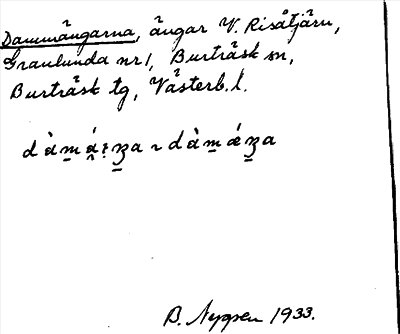 Dammängarna, ängar V. Risåtjärn,
Granlunda nr 1, Burträsk sn,
Burträsk tg, Västerb. l.
B. Nygren 1933.